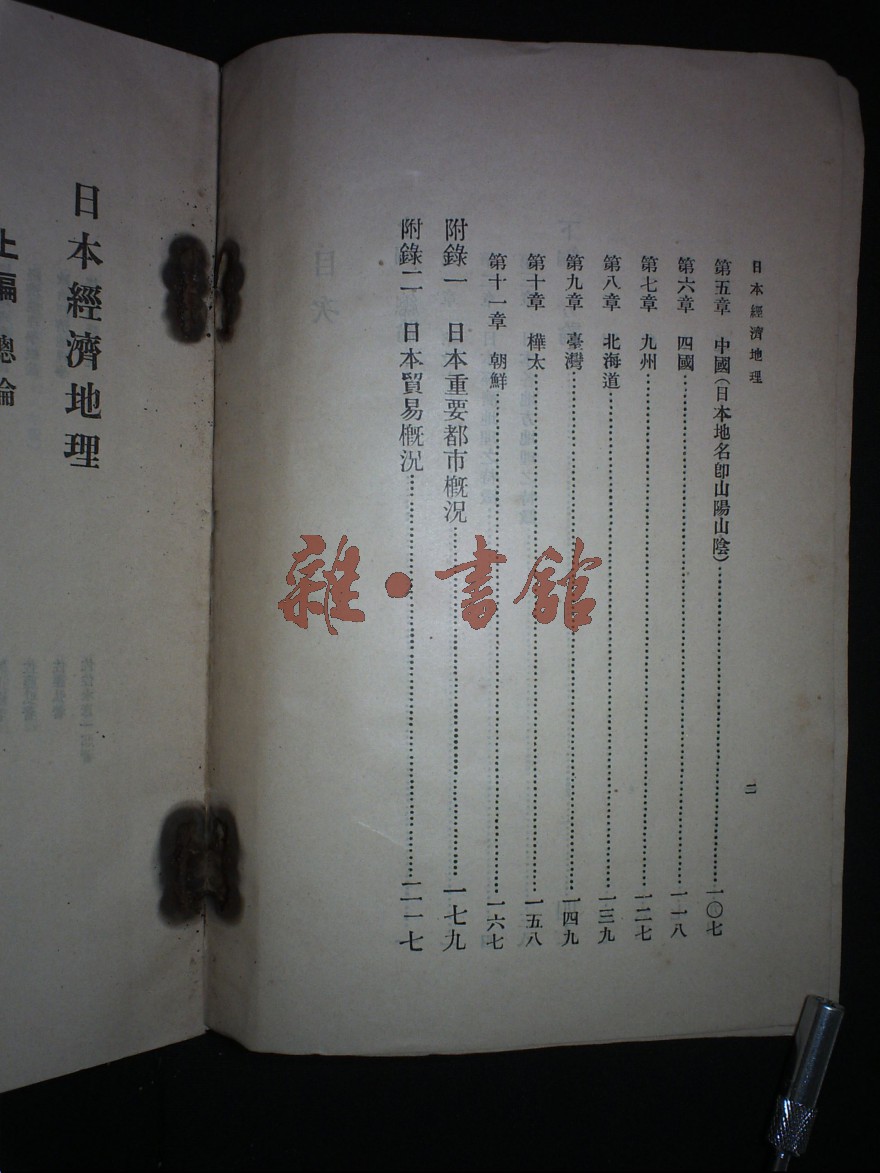 日本經濟地理
第五章　中國(日本地名卽山陽山陰)……一〇七
第六章　四國……一一八
第七章　九州……一二七
第八章　北海道……一三九
第九章　臺灣……一四九
第十章　樺太……一五八
第十一章　朝鮮……一六七
附錄一　日本重要都市槪況……一七九
附錄二　日本貿易槪況……二一七
二
日本經濟地理
上編　總論
雜·書館